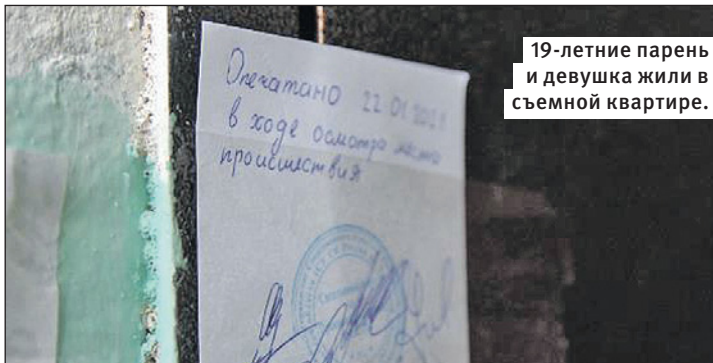 19-летние парень
и девушка жили в
съемной квартире.
Опечатано 22.01.2021
в ходе осмотра места
происшествия